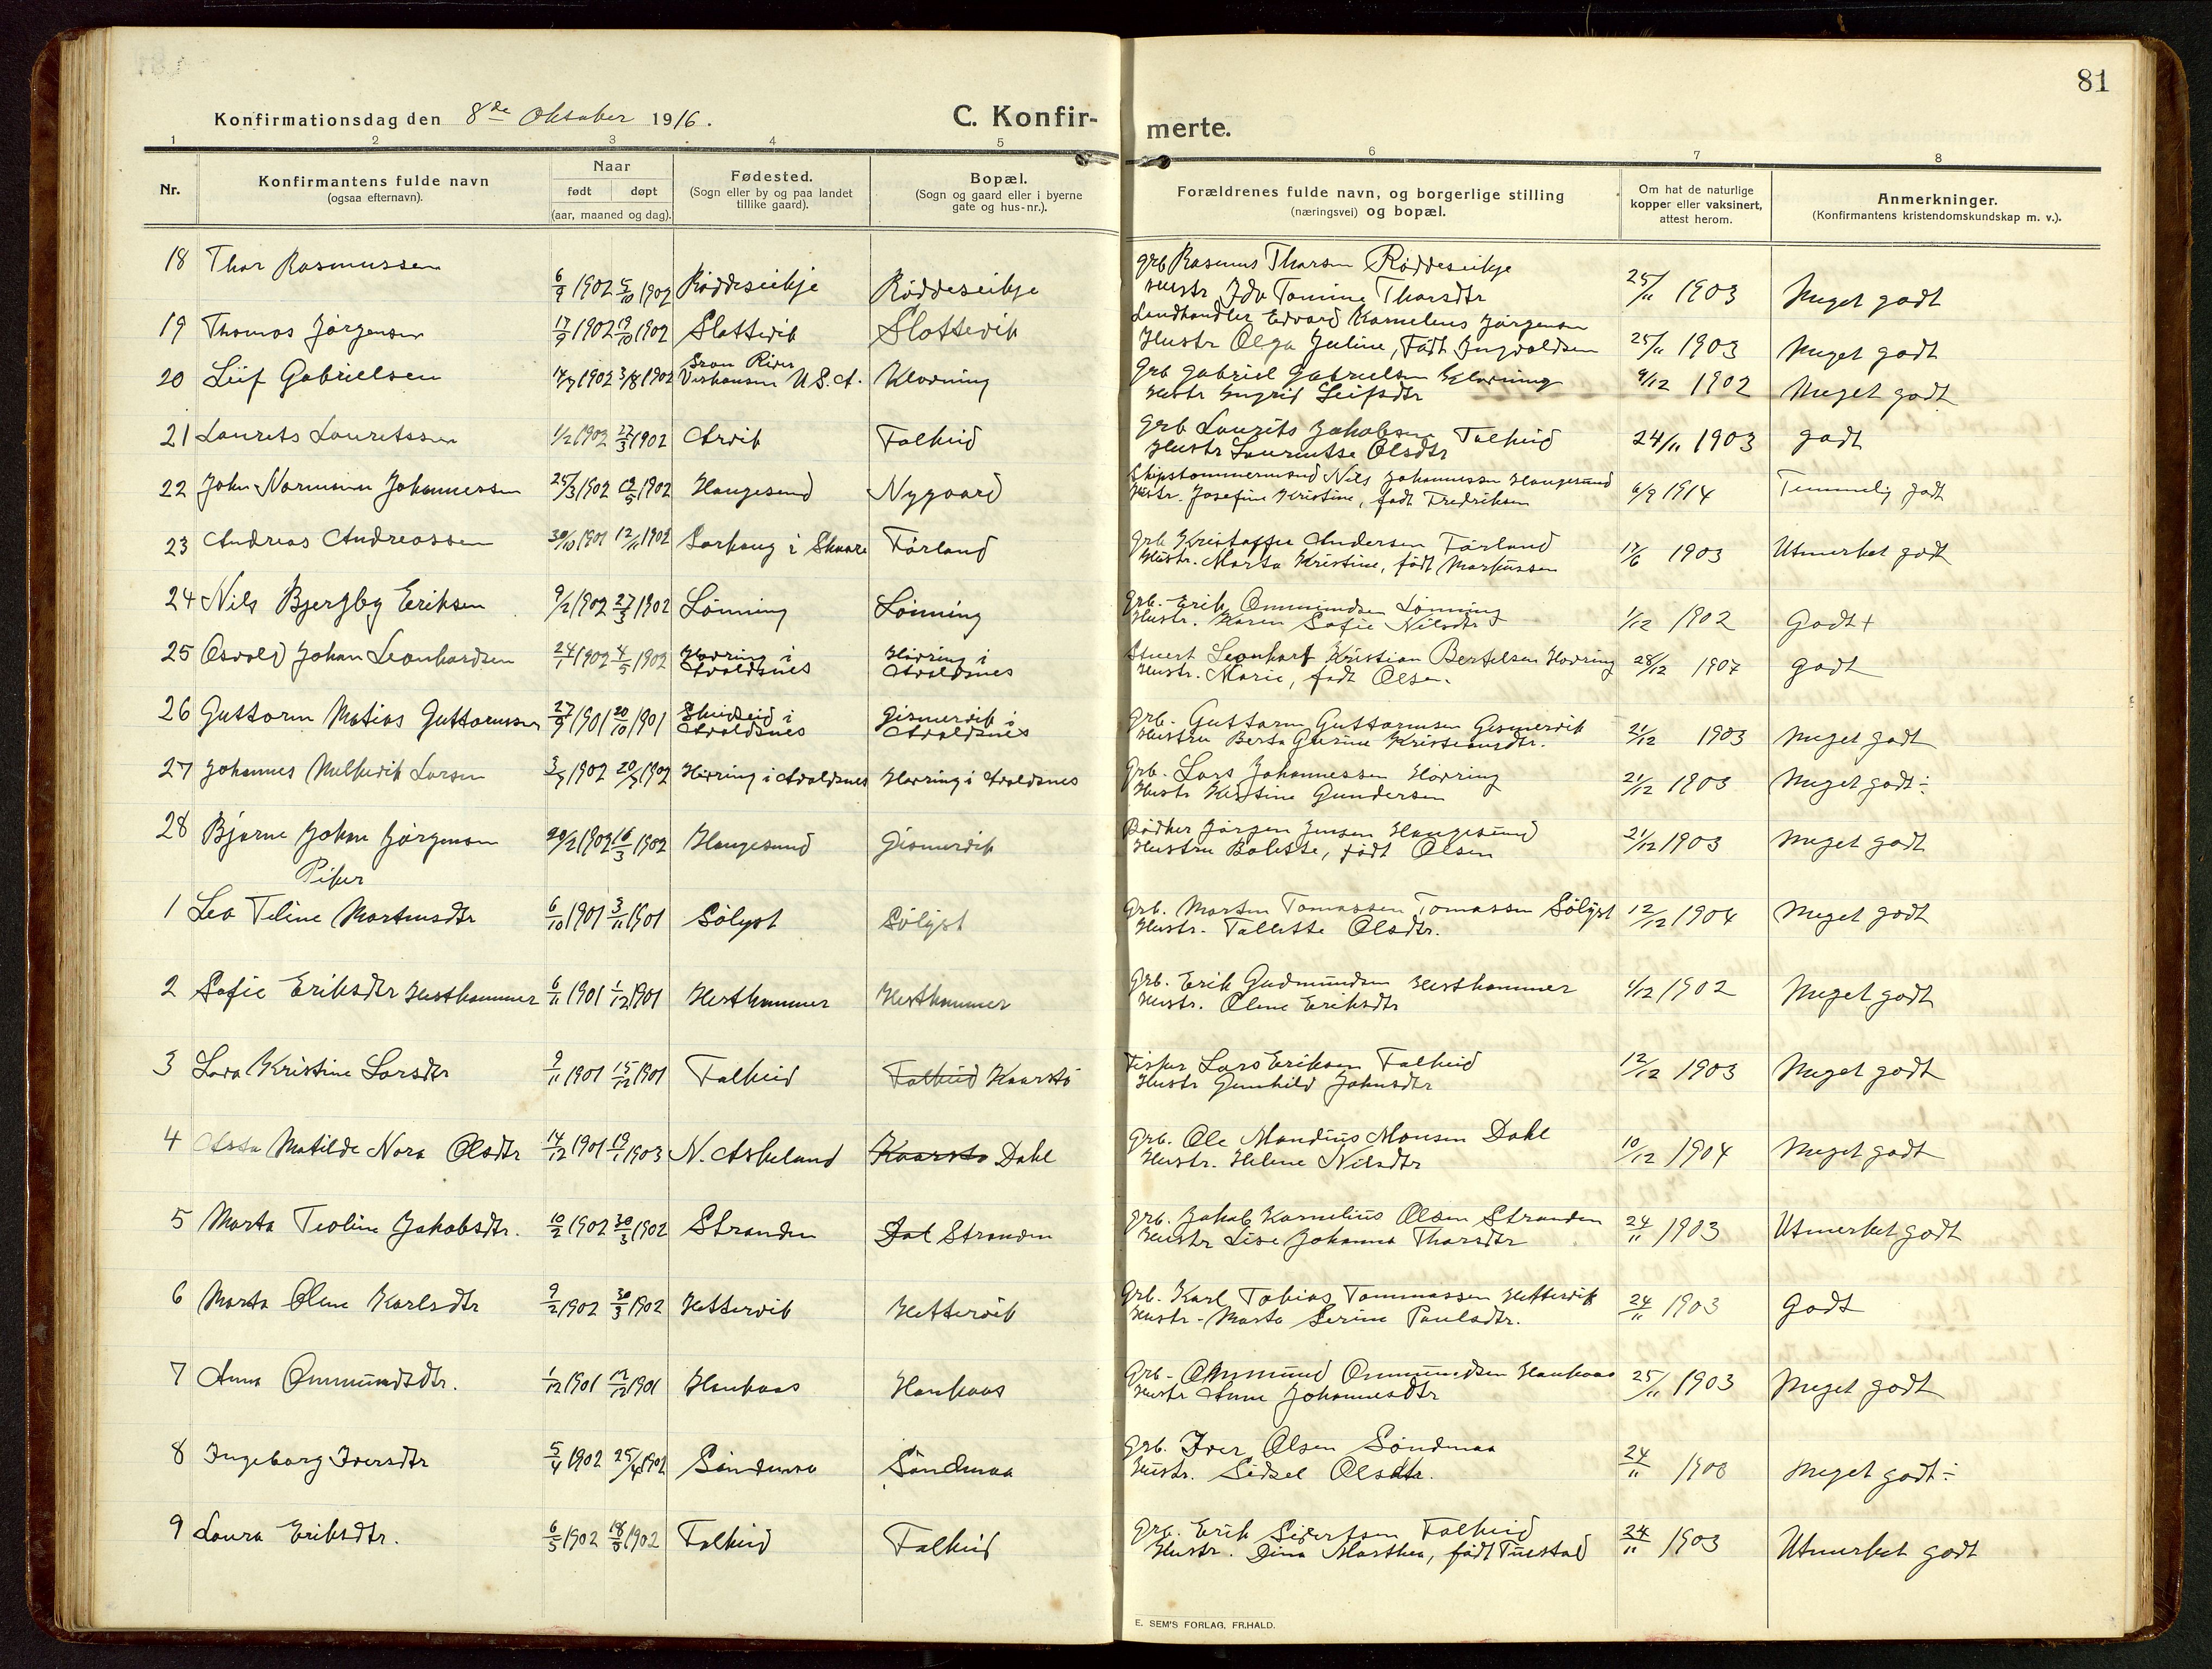 81
Konfirmationsdag den 8de Oktober 1916.
C. Konfir-
merte.
1 2 3 4 5 6 7 8
Nr.
Konfirmantens fulde navn
(ogsaa efternavn).
Naar
født døpt
(aar, maaned og dag).
Fødested.
(Sogn eller by og paa landet
tillike gaard).
Bopæl.
(Sogn og gaard eller i byerne
gate og hus-nr.).
Forældrenes fulde navn, og borgerlige stilling
(næringsvei) og bopæl.
Om hat de naturlige
kopper eller vaksinert,
attest herom.
Anmerkninger.
(Konfirmantens kristendomskundskap m. v.).
18 Thor Rasmussen 6/9 1902 5/10 1902 Röddeseikje Röddeseikje
grb Rasmus Tharsen Röddeseikje
Hustr Ida Tomine Tharsdtr
25/11 1903 Meget godt
19 Thomas Jørgensen 17/9 1902 19/10 1902 Slottevik Slottevik
Landhandler Edvard Kornelius Jørgensen
Hustr Olga Juline, født Ingvaldsen
25/11 1903 Meget godt
20 Leif Gabrielsen 14/7 1902 3/8 1902 U.S.A. Klovning
Grb Gabriel Gabrielsen Klovning
Hustr Ingrid Leifsdtr
9/12 1902 Meget godt
21 Laurits Lauritssen 1/2 1902 27/3 1902 Arvik Falkeid
Grb Laurits Jakobsen Falkeid
Hustr Lauritse Olsdtr
24/11 1903 godt
22 John Normann Johannessen 25/3 1902 19/5 1902 Haugesund Nygaard
Skipstømmermand Nils Johannessen Haugesund
Hustr. Josefine Kristine, født Fredriksen
6/9 1914 Temmelig godt
23 Andreas Andreassen 30/10 1901 12/11 1902 Sørhaug i Skaare Førland
Grb Kristoffer Andersen Førland
Hustr. Marta Kristine, født Markussen
17/6 1903 Utmerket godt
24 Nils Bjergby Eriksen 9/2 1902 27/3 1902 Lönning Lönning
Grb. Erik Ommundsen Lönning
Hustr. Karen Sofie Nilsdtr
1/12 1902 Godt +
25 Osvald Johan Leonhardsen 24/1 1902 4/5 1902 Hovring i Avaldsnes Hovring i Avaldsnes
Leonhart Kristian Bertelsen Hovring
Hustr. Marie, født Olsen.
28/12 1907 godt
26 Guttorm Matias Guttormsen 27/9 1901 20/10 1901 Skeidseid i Avaldsnes Gismervik i Avaldsnes
Grb. Guttorm Guttormsen Gismervik
Hustru Berta Gurine Kristiansdtr.
21/12 1903 Meget godt
27 Johannes Melkevik Larsen 3/7 1902 20/7 1902 Hovring i Avaldsnes Hovring i Avaldsnes
Grb. Lars Johannessen Hovring
Hustr Kristine Gundersen
21/12 1903 Meget godt ÷
28 Bjarne Johan Jørgensen 20/2 1902 16/3 1902 Haugesund Gismervik
Bødker Jørgen Jensen Haugesund
Hustru Bolette, født Olsen
21/12 1903 Meget godt
Piker
1 Lea Teline Martinsdtr 6/10 1901 3/11 1901 Sölyst Sölyst
Grb. Martin Tomassen Tomassen Sölyst
Hustr. Tallette Olsdtr.
12/12 1904 Meget godt
2 Sofie Eriksdtr Hesthammer 6/11 1901 1/12 1901 Hesthammer Hesthammer
Grb. Erik Gudmundsen Hesthammer
Hustr. Oline Eriksdtr
4/12 1902 Meget godt
3 Lava Kristine Larsdtr 9/11 1901 15/12 1901 Falkeid Falkeid Kaarstö
Fisker Lars Eriksen Falkeid
Hustr Gunhild Johnsdtr
12/12 1903 Meget godt
4 Asta Matilde Nora Olsdtr 14/12 1901 19/1 1903 N. Askeland Kaarstø Dahl
Grb. Ole Mandius Monsen Dahl
Hustr. Helene Nilsdtr
10/12 1904 Meget godt
5 Marta Teoline Jakobsdtr. 10/2 1902 30/3 1902 Stranden Dal Stranden
Grb. Jakob Kornelius Olsen Stranden
Hustr Lise Johanna Tharsdtr
24/11 1903 Utmerket godt
6 Marta Oline Karlsdtr 9/2 1902 30/3 1902 Hettervik Hettervik
Grb. Karl Tobias Tommassen Hettervik
Hustr. Marta Serine Paulsdtr.
24/11 1903 Godt
7 Anna Ommundsdtr. 1/12 1901 17/12 1901 Haukaas Haukaas
Grb. Ommund Ommundsen Haukaas
Hustr Anne Johannesdtr
25/11 1903 Meget godt
8 Ingeborg Iversdtr 5/4 1902 25/4 1902 Söndmaa Söndmaa
Grb. Iver Olsen Söndmaa
Hustr. Sidsel Olsdtr.
24/11 1903 Meget godt ÷
9 Laura Eriksdtr. 6/5 1902 18/5 1902 Falkeid Falkeid
Grb. Erik Sivertsen Falkeid
Hustr. Dina Marthea, født Tuestad
24/11 1903 Utmerket godt
E. SEM'S FORLAG, FR.HALD.